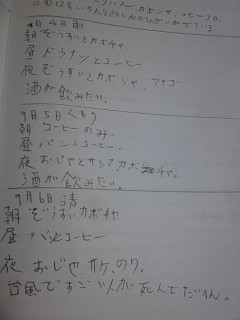 9月4日雨
朝 ぞうすいとカボチャ
昼 ドウナツとコーヒー
夜 ぞうすいとカボシャ、アナゴ
酒が飲みたい。
9月5日くもり
朝 コーヒーのみ.
昼 パンとコーヒー
夜 おじやとサンマ、カボチャ。
酒が飲みたい。
9月6日晴
朝 ぞうすいカボチャ
昼 パンとコーヒー
夜 おじや、サケ、のり.
台風ですごい人が死んでだいん。